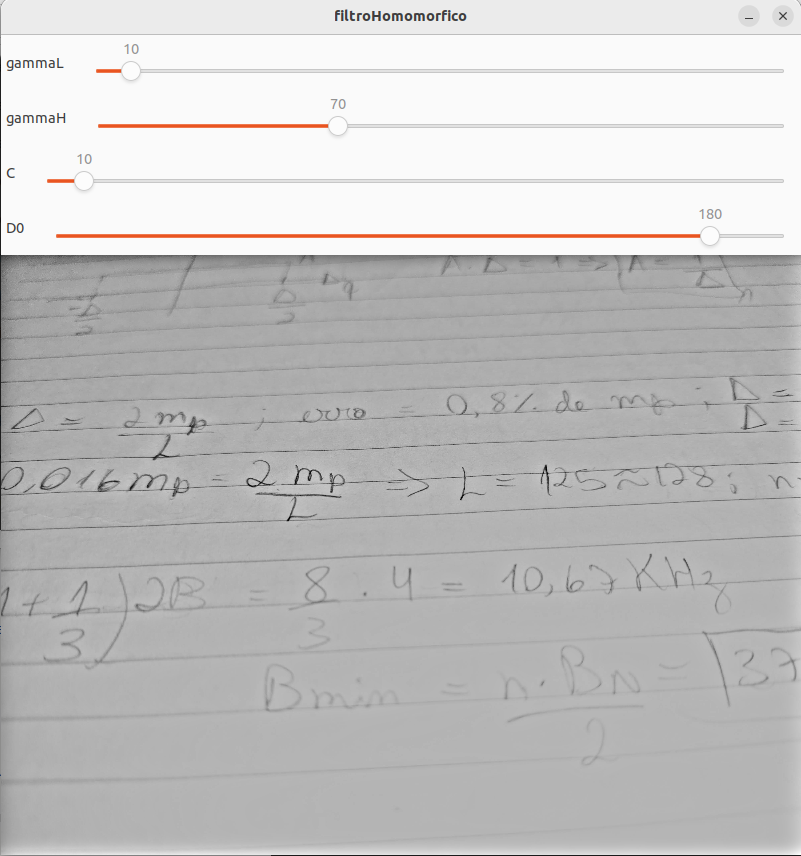 filtroHomomorfico
10
gammaL
70
gammaH
10
C
180
D0
Δ = 2mp/L ; erro = 0,8% do mp ; Δ/Δ =
0,016mp = 2mp/L => L = 125≈128 ; n
1 + 1/3) 2B = 8/3 . 4 = 10,67 KHz
Bmin = n·BN/2 = 37